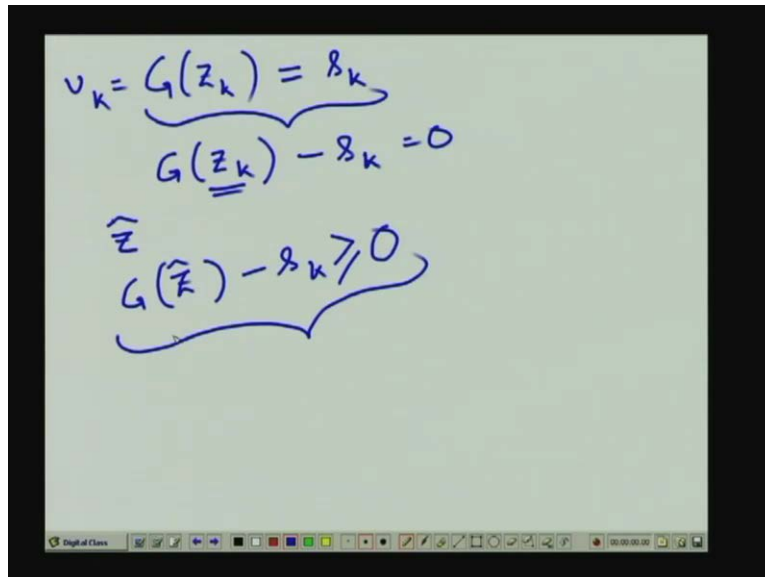 υ_k = G(z_k) = s_k
G(z_k) - s_k = 0
ẑ
G(ẑ) - s_k ≥ 0
Digital Class
00:00:00.00